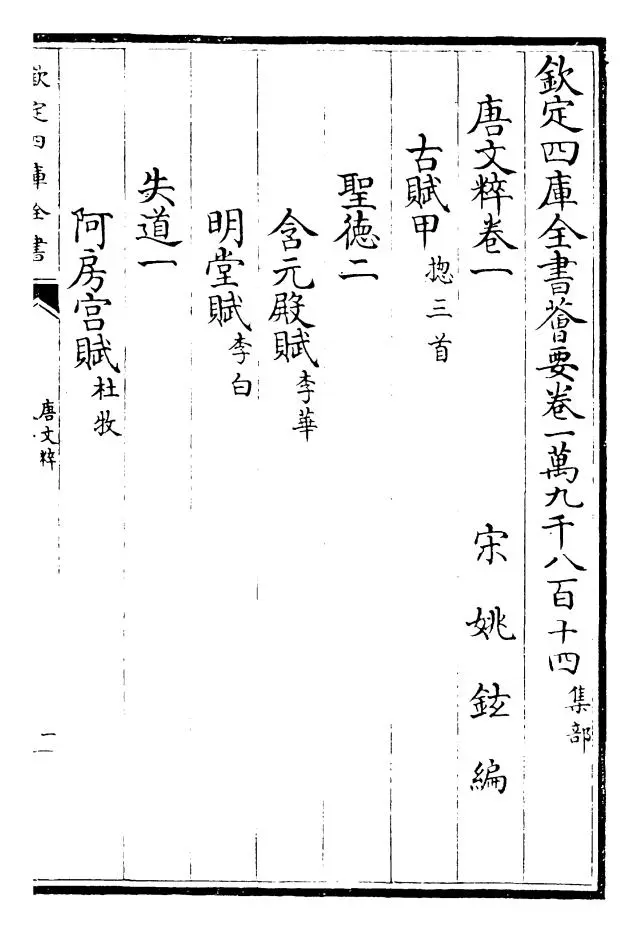 欽定四庫全書薈要卷一萬九千八百十四 集部
唐文粹卷一
宋 姚鉉 編
古賦甲 揔三首
聖德二
含元殿賦 李華
明堂賦 李白
失道一
阿房宮賦 杜牧
欽定四庫全書
唐文粹
一